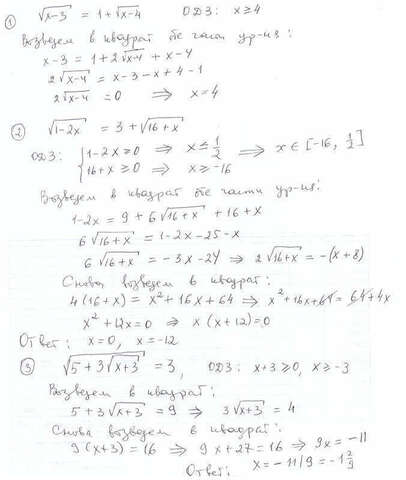 ① √(x-3) = 1+√(x-4)   ОДЗ: x≥4
Возведем в квадрат обе части ур-из:
x-3 = 1+2√(x-4) + x-4
2√(x-4) = x-3-x+4-1
2√(x-4) = 0 ⇒ x=4
② √(1-2x) = 3+√(16+x)
ОДЗ: { 1-2x≥0 ⇒ x≤1/2 ⇒ x∈[-16, 1/2]
16+x≥0 ⇒ x≥-16
Возведем в квадрат обе части ур-из:
1-2x = 9+6√(16+x) +16+x
6√(16+x) = 1-2x-25-x
6√(16+x) = -3x-24 ⇒ 2√(16+x) = -(x+8)
Снова возведем в квадрат:
4(16+x) = x²+16x+64 ⇒ x²+16x+64 = 64+4x
x²+12x=0 ⇒ x(x+12)=0
Ответ: x=0, x=-12
③ √(5+3√(x+3)) = 3, ОДЗ: x+3≥0, x≥-3
Возведем в квадрат:
5+3√(x+3) = 9 ⇒ 3√(x+3) = 4
Снова возведем в квадрат:
9(x+3) = 16 ⇒ 9x+27=16 ⇒ 9x=-11
Ответ: x=-11/9=-1 2/9